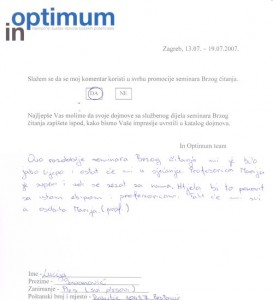 inoptimum
Zagreb, 13.07. – 19.07.2007.
Slažem se da se moj komentar koristi u svrhu promocije seminara Brzog čitanja.
DA NE
Najljepše Vas molimo da svoje dojmove sa službenog dijela seminara Brzog
čitanja zapišete ispod, kako bismo Vaše impresije uvrstili u katalog dojmova.
In Optimum team
Ovo razdoblje seminara Brzog čitanja mi je bilo
jako lijepo i ostat će mi u sjećanju. Profesorica Marija
je super i
se
za nama. Htjela bi to ponovit
sa istom ekipom i profesoricom. Falit će mi svi
a osobito Marija (prof.)
Ime - Lucija
Prezime -
Zanimanje - Ples
Poštanski broj i mjesto -